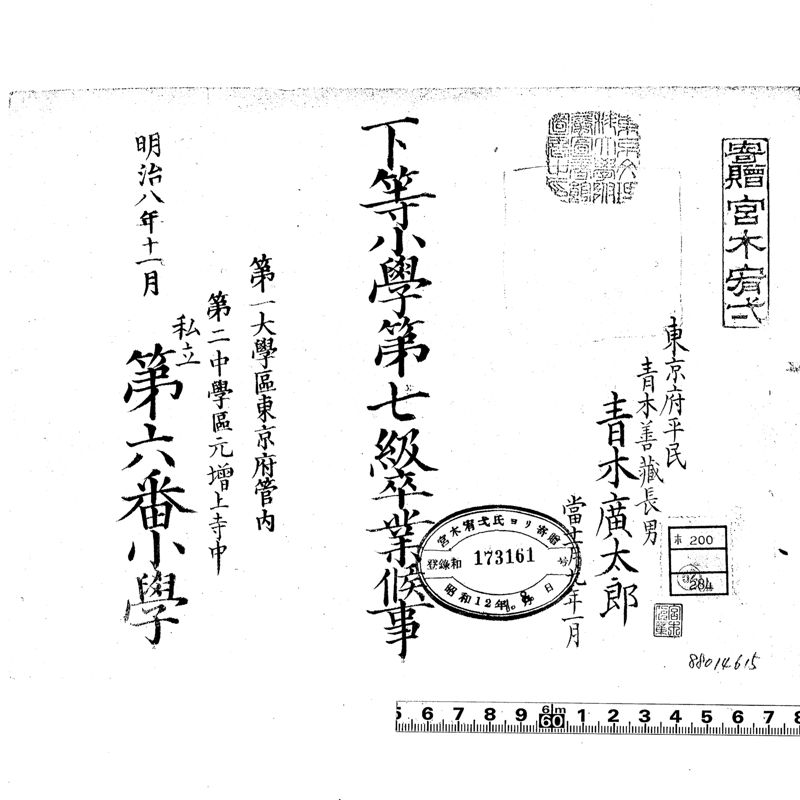 寄贈宮木宥弌
東京府平民
青木善藏長男
青木廣太郎
當十一月九年一月
下等小學第七級卒業候事
第一大學區東京府管内
第二中學區元增上寺中
私立
第六番小學
明治八年十一月
宮木宥弌氏ヨリ寄贈
登錄和 173161 号
昭和12年 月 日
ホ 200
284
88014615
5 6 7 8 9 6m 60 1 2 3 4 5 6 7 8